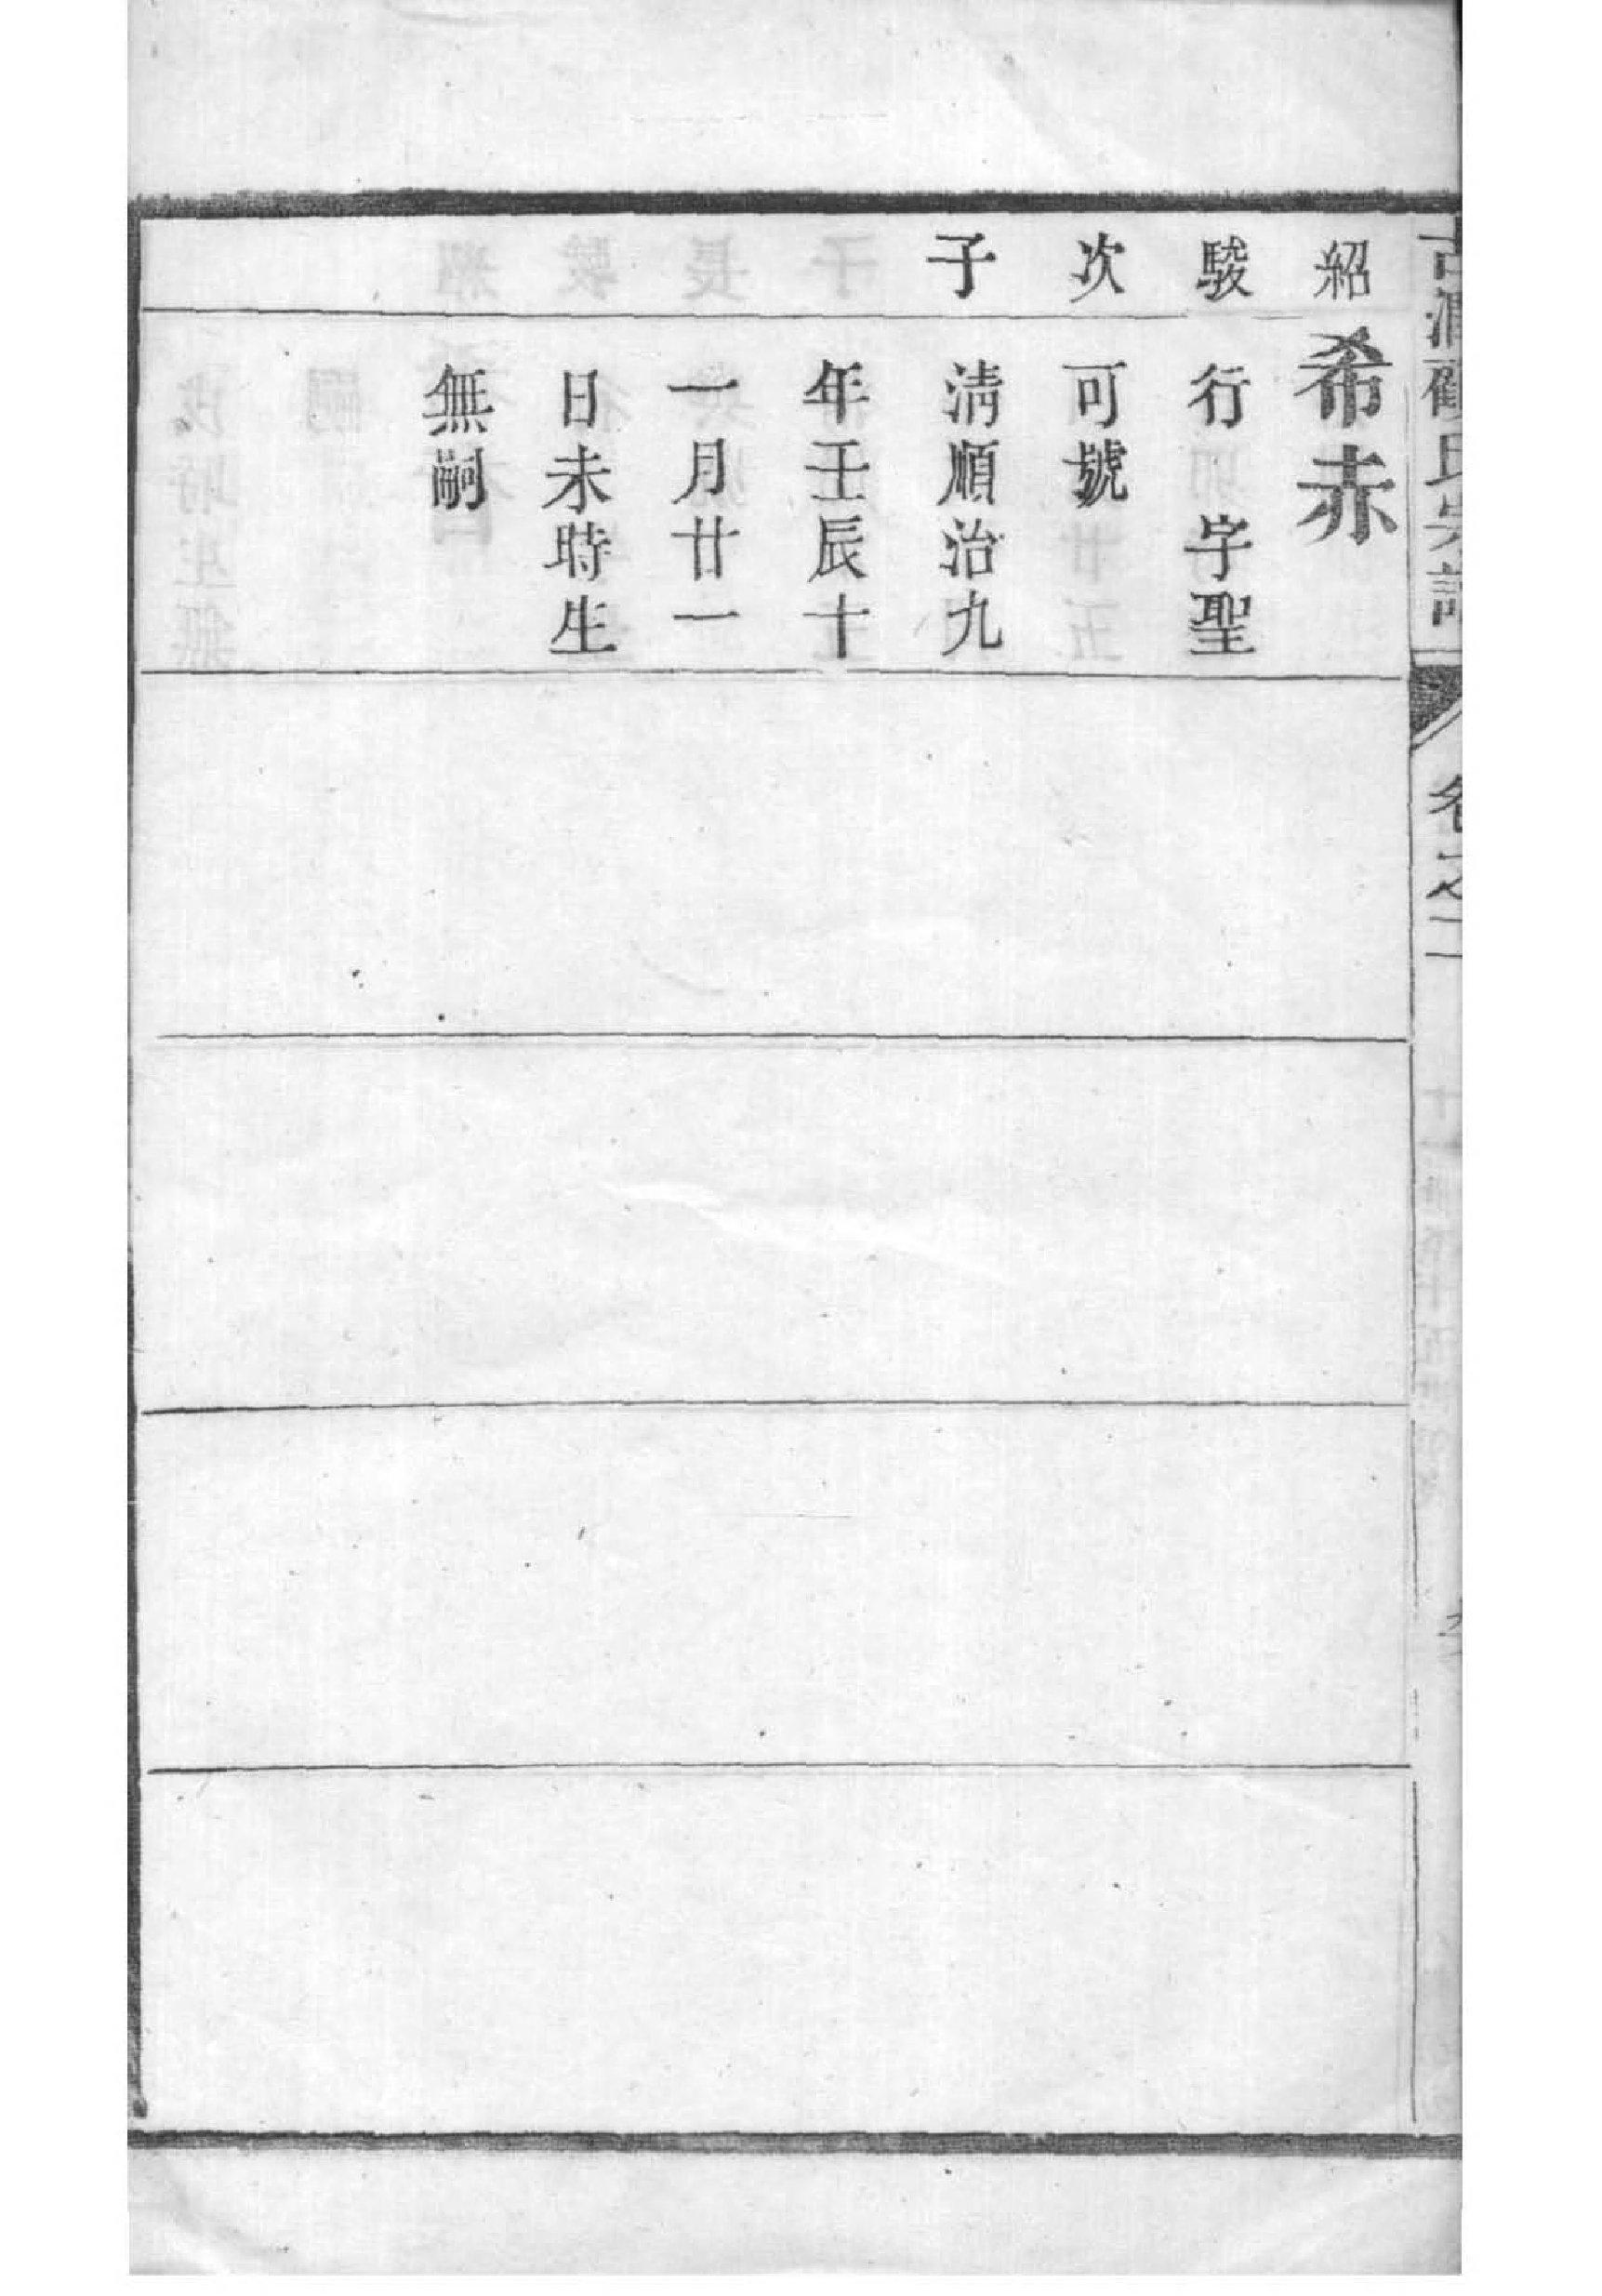 紹
駿
次
子
希赤
行　字聖
可號
淸順治九
年壬辰十
一月廿一
日未時生
無嗣
氏宗譜
卷之二